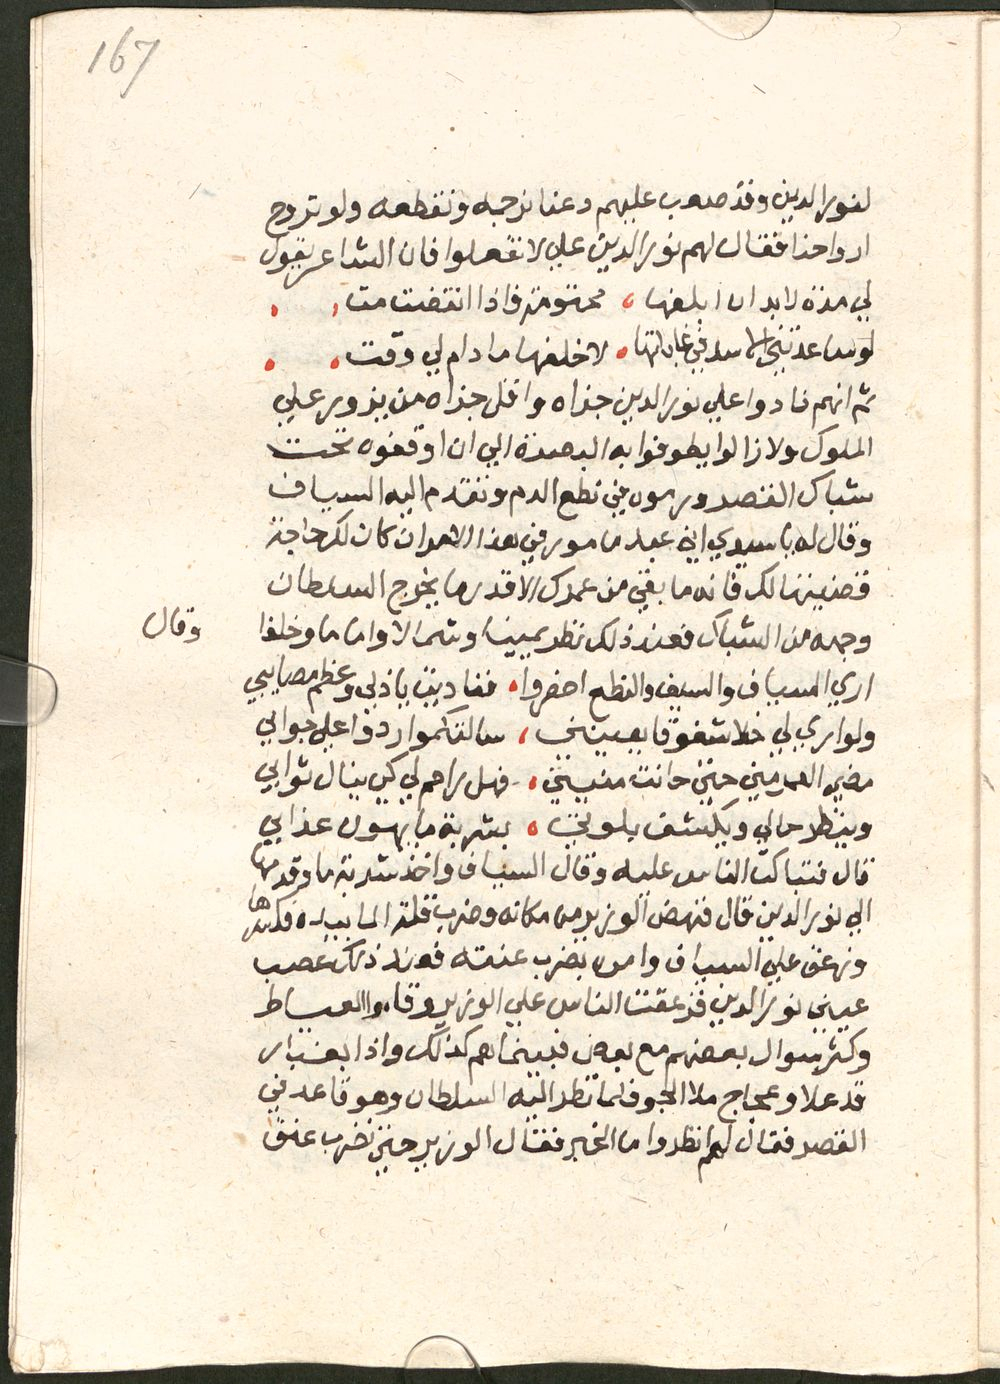 167
لنور الدين وقد صعب عليهم دعنا نرجمه ونقطعه ولو تروح
ارواحنا فقال لهم نور الدين علي لا تفعلوا فان الشاعر يقول
لي مدة لا بد ان ابلغها ، محتومة فاذا انقضت مت ،
لو ساعدتني الاسد في غاباتها ، لا خلفها ما دام لي وقت ،
ثم انهم نادوا علي نور الدين جذاه واقل جذاه من يزور علي
الملوك ولا زالوا يطوفوا به البصرة الي ان اوقفوه تحت
شباك القصر ورموه في نطع الدم وتقدم اليه السياف
وقال له يا سيدي اني عبد مامور في هذا الامر ان كان لك حاجة
قضيتها لك فانه ما بقي من عمرك الا قدر ما يخرج السلطان
وجهه من الشباك فعند ذلك نظر يمينا وشمالا واماما وخلفا وقال
اري السياف والسيف والنطع احضروا ، فناديت يا ذلي وعظم مصايبي
ولو اري لي خلا شفوقا يعينني ، سالتكموا ردوا علي جوابي
مضي العمر مني حتي حانت منيتي ، فهل راحم لي كي ينال ثوابي
وينظر حالي ويكشف بلوتي ، بشربة ما يهون عذابي
قال فتباكت الناس عليه وقال السياف واخذ شربة ما وقدمها
الي نور الدين قال فنهض الوزير من مكانه وضرب قلة الما بيده فكسرها
وزعق علي السياف وامره بضرب عنقه فعند ذلك عصب
عيني نور الدين فزعقت الناس علي الوزير وقاموا العياط
وكثر سوال بعضهم مع بعض فبينما هم كذلك واذا بغبار
قد علا وعجاج ملا الجو فلما نظر اليه السلطان وهو قاعد في
القصر فقال لهم انظروا ما الخبر فقال الوزير حتي نضرب عنق